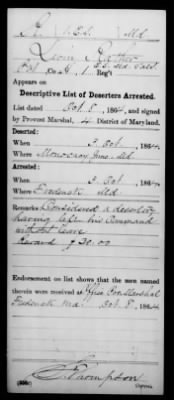 E.S. Md
Levin
Reg't
Appears on
Descriptive List of Deserters Arrested.
List dated Oct 8, 1864, and signed
by Provost Marshal, 4 District of Maryland.
Deserted:
When 3 Oct, 1864
Where Monocacy Md
Arrested:
When 3 Oct, 1864
Where Frederick Md
Remarks Considered a deserter
having left his Command
without leave
Reward $30.00
Endorsement on list shows that the men named
therein were received at Office Pro. Marshal
Frederick Md Oct 8, 1864
Thompson
Copyist.